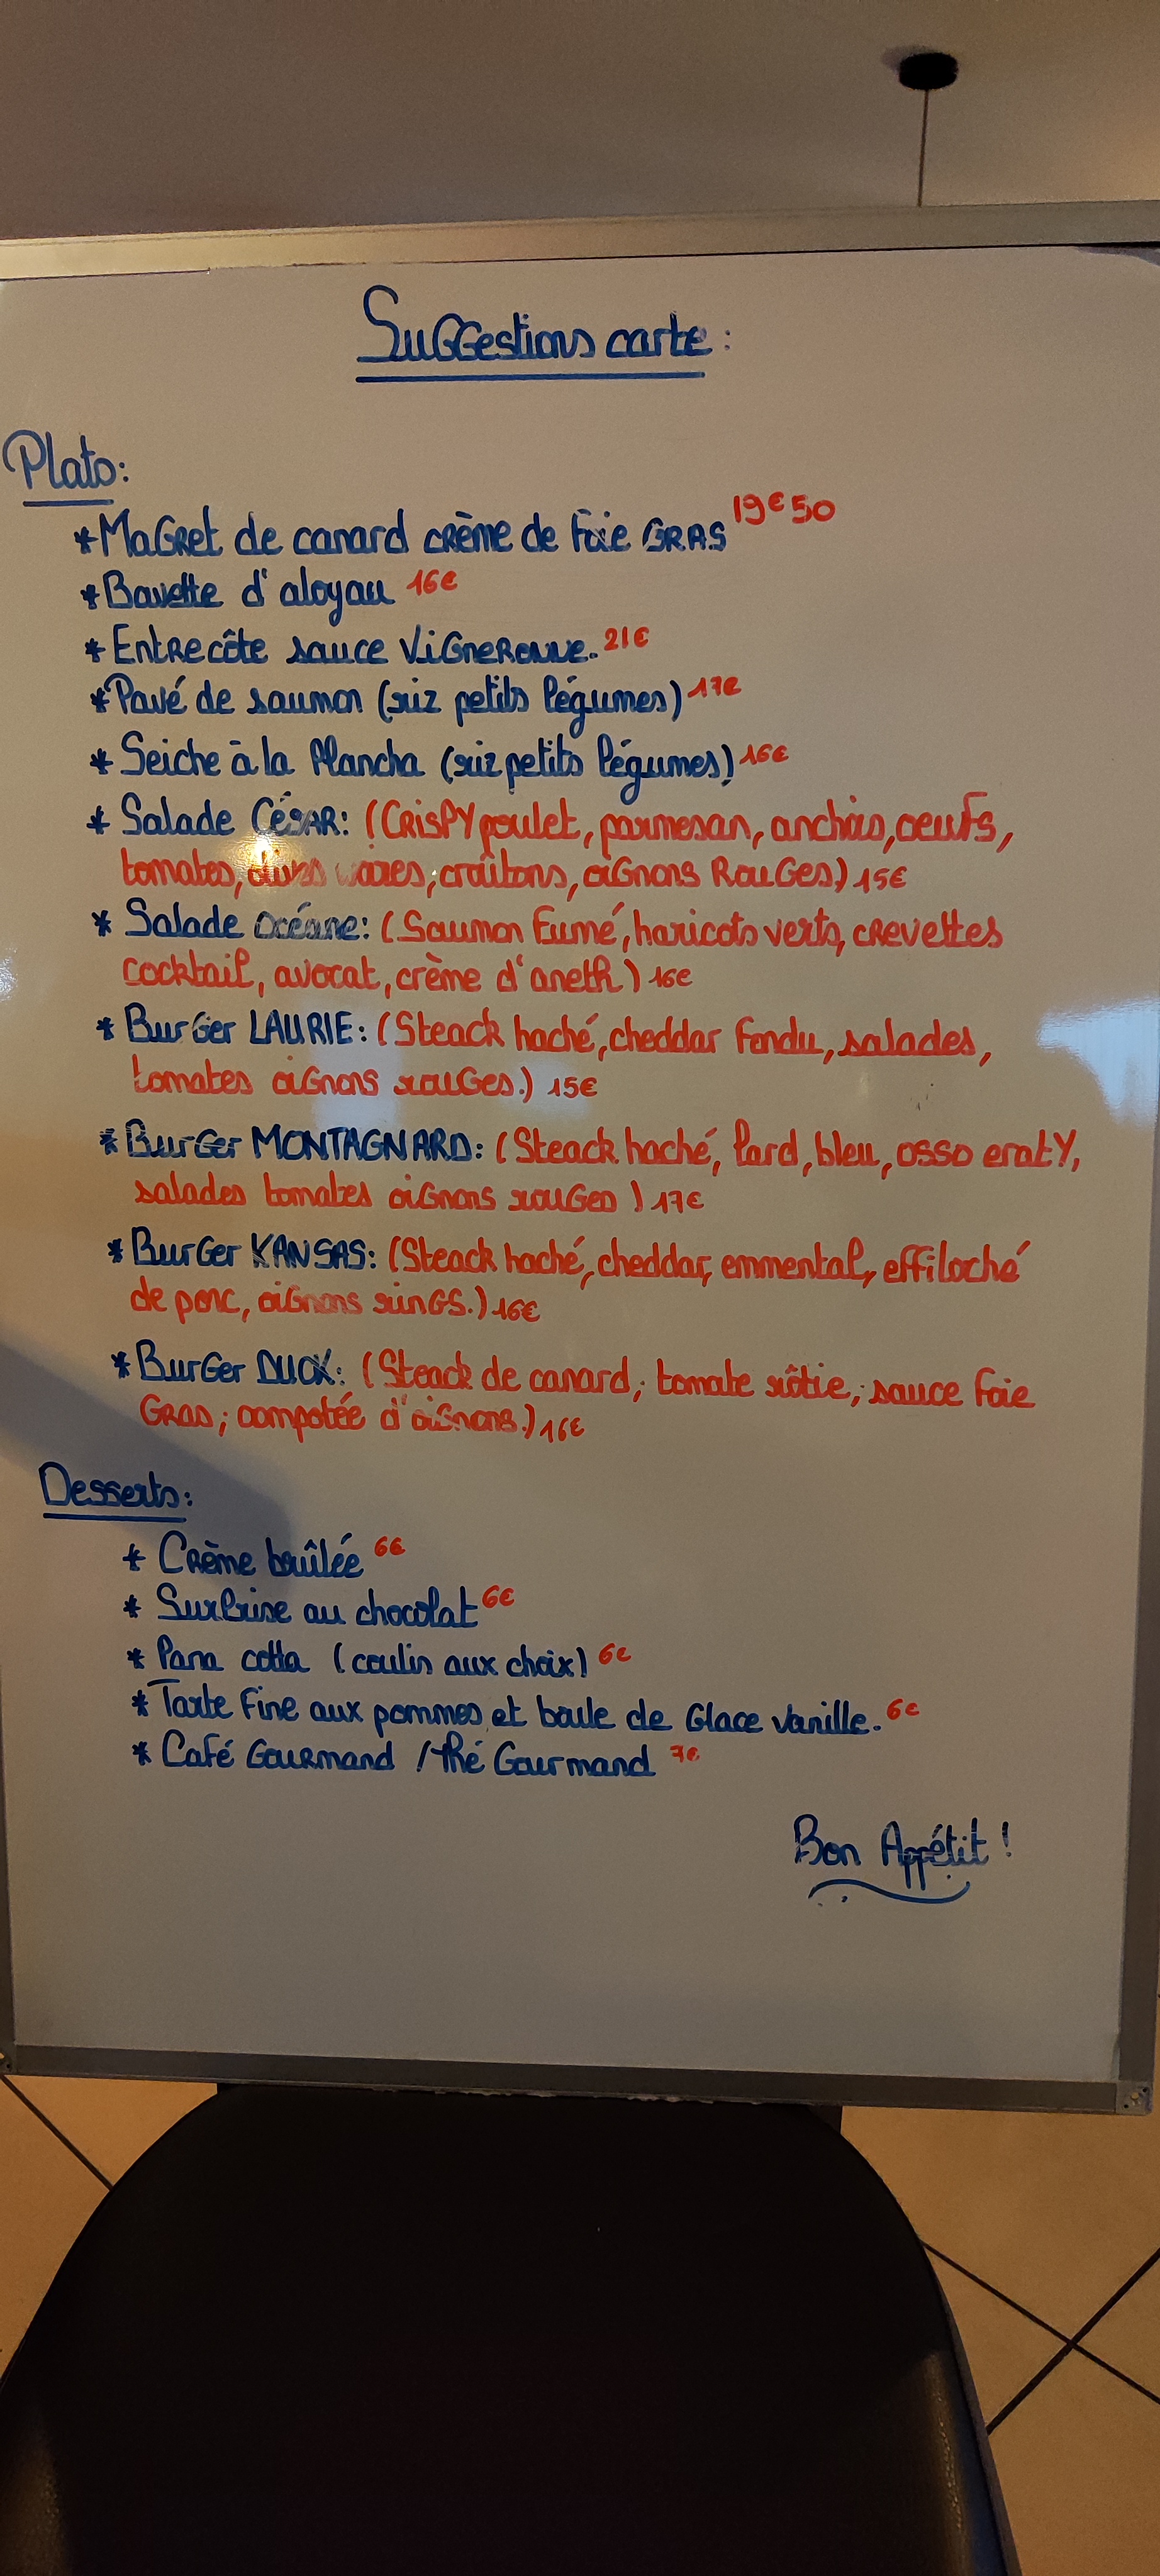 Suggestions carte :
Plats :
* Magret de canard crème de foie GRAS 19€50
* Bavette d'aloyau 16€
* Entrecôte sauce Vigneronne. 21€
* Pavé de saumon (riz petits légumes) 17€
* Seiche à la Plancha (riz petits légumes) 16€
* Salade César : (Crispy poulet, parmesan, anchois, oeufs,
tomates, olives noires, croûtons, oignons Rouges) 15€
* Salade Océane : (Saumon Fumé, haricots verts, crevettes
cocktail, avocat, crème d'aneth) 16€
* Burger LAURIE : (Steack haché, cheddar fondu, salades,
tomates oignons rouges.) 15€
* Burger MONTAGNARD : (Steack haché, lard, bleu, osso eratY,
salades tomates oignons rouges) 17€
* Burger KANSAS : (Steack haché, cheddar, emmental, effiloché
de porc, oignons rings.) 16€
* Burger DUCK : (Steack de canard, tomate rôtie, sauce foie
Gras ; compotée d'oignons.) 16€
Desserts :
* Crème brûlée 6€
* Surprise au chocolat 6€
* Pana cotta (coulis aux choix) 6€
* Tarte Fine aux pommes et boule de Glace vanille. 6€
* Café Gourmand / thé Gourmand 7€
Bon Appétit !